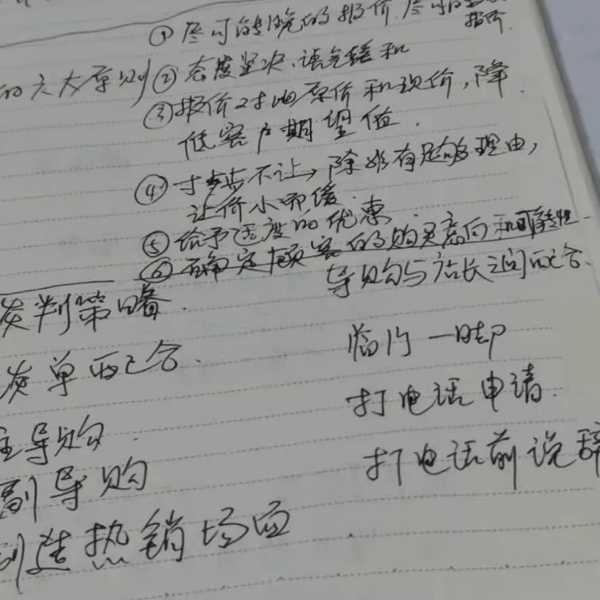 ① 尽可能晚的报价 尽可能
报价
的六大原则 ② 态度坚决、语气缓和
③ 报价对比原价和现价，降
低客户期望值.
④ 寸步不让→除非有足够理由，
让价小而缓
⑤ 给予适度的优惠
⑥ 确定顾客的购买意向和可靠性
导购与店长之间配合.
谈判策略.
临门一脚
谈单配合.
打电话申请.
主导购.
打电话前说辞
副导购
创造热销场面